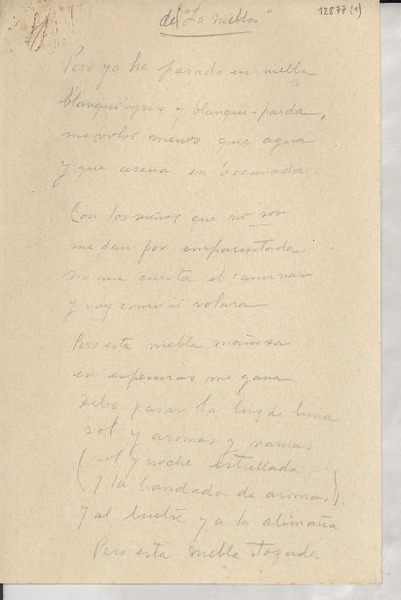 12877(1)
de "La niebla"
Pero yo he parado en niebla
blanquigris y blanqui-parda,
me volví menos que agua
y que arena en bocanada.
Con los niños que no son
me dan por emparentada.
no me cuesta el caminar
y voy como si volara
Pero esta niebla mañosa
en esperanzas me gana
Debo pasar la luz de luna
sol y aromas y ramas
(sol y noche estrellada
y la bandada de aromas).
y al buitre y a la alimaña
Pero esta niebla tozuda